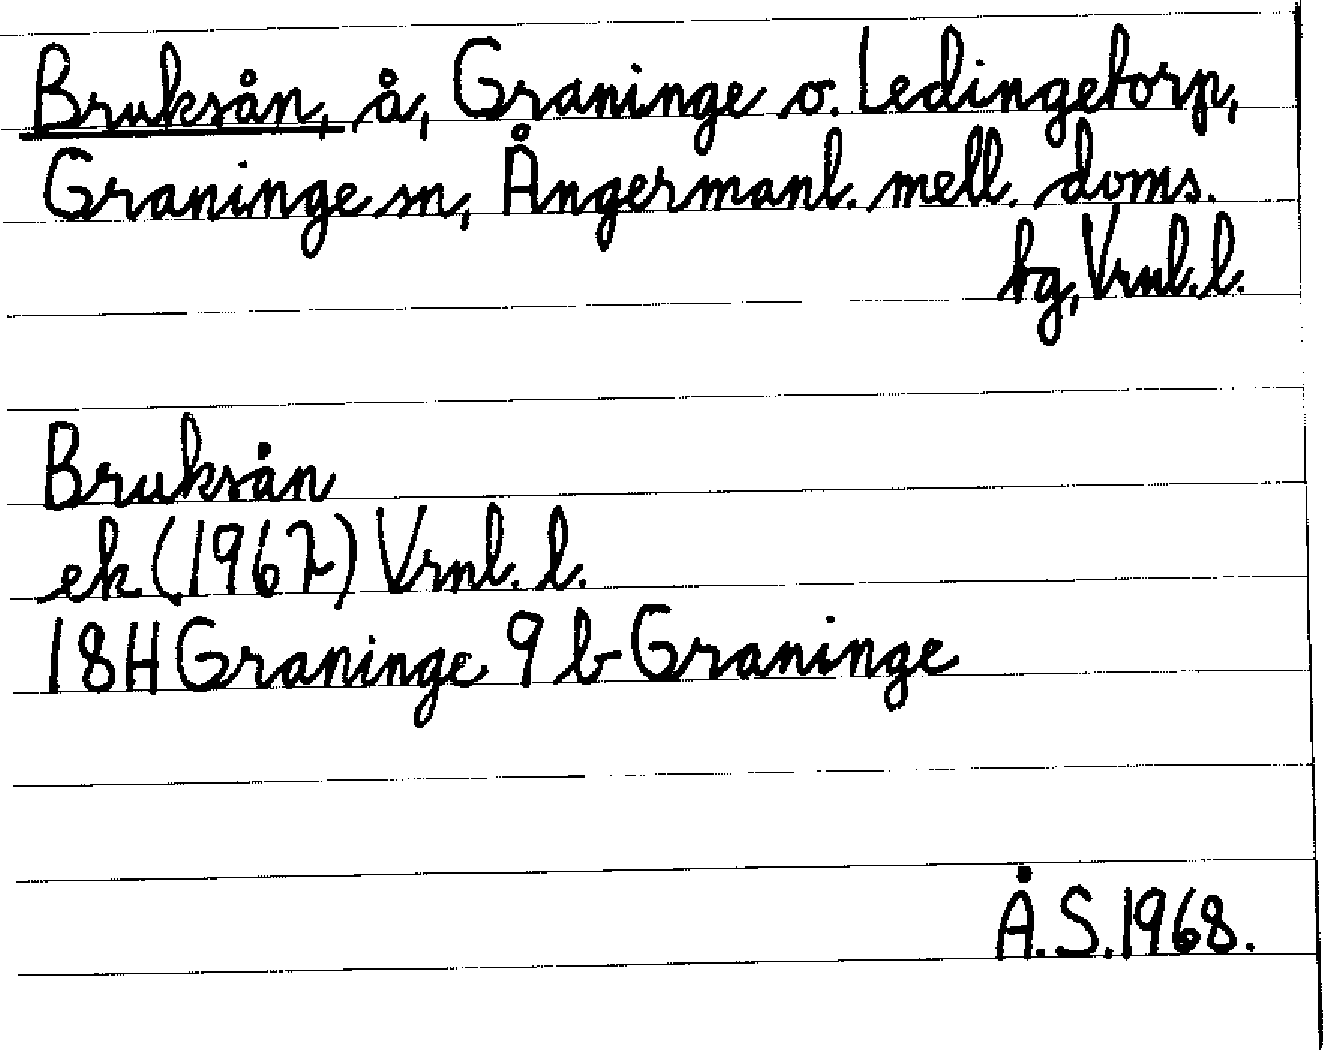 Bruksån, å, Graninge o. Ledingetorp,
Graninge sn, Ångermanl. mell. doms.
tg, Vrnl. l.
Bruksån
ek (1967) Vrnl. l.
18H Graninge 9 b Graninge
Å.S. 1968.